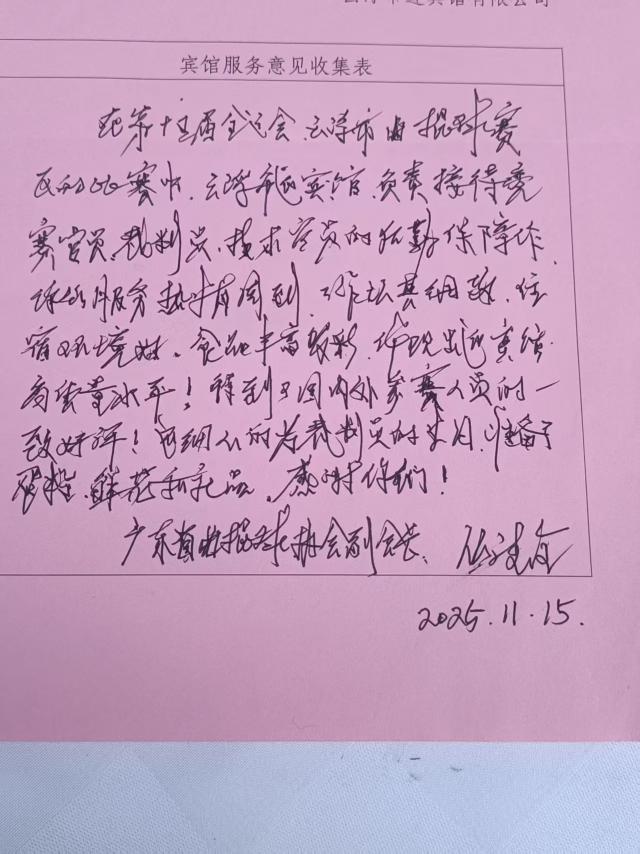 宾馆有限公司
宾馆服务意见收集表
在第十五届全运会云浮市曲棍球赛
区的比赛中，云浮 宾馆负责接待竞
赛官员、裁判员、技术官员的后勤保障工作，
你们服务热情周到，工作认真细致，住
宿环境好，食品丰富多彩，体现出 宾馆
高质量水平！得到了国内外参赛人员的一
致好评！ 细心的为裁判员的生日，准备了
蛋糕、鲜花和礼品，感谢你们！
广东省曲棍球协会副会长
2025.11.15.